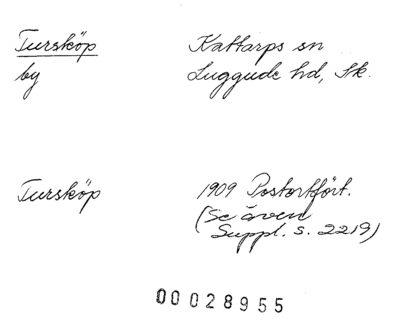 Tursköp
by
Kattarps sn
Luggude hd, Sk.
Tursköp
1909 Postortfört.
(Se även
Suppl. s. 2219)
00028955